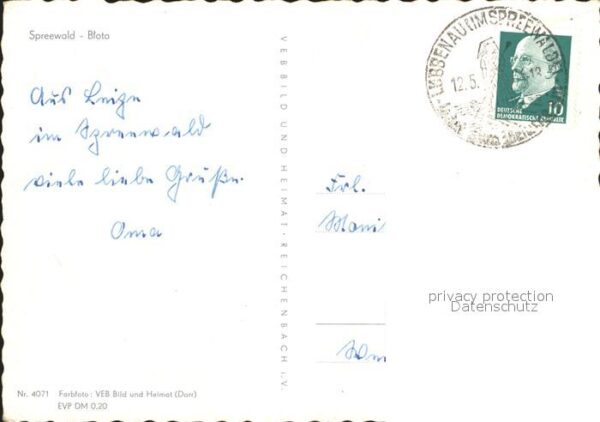 Spreewald - Bfoto
Aus Leipe
im Spreewald
viele liebe Grüße.
Oma
VEB BILD UND HEIMAT · REICHENBACH i.V.
LÜBBENAU (IM SPREEWALD)
12.5.
10
DEUTSCHE
DEMOKRATISCHE REPUBLIK
Frl.
Moni
privacy protection
Datenschutz
Nr. 4071 Farbfoto: VEB Bild und Heimat (Darr)
EVP DM 0,20